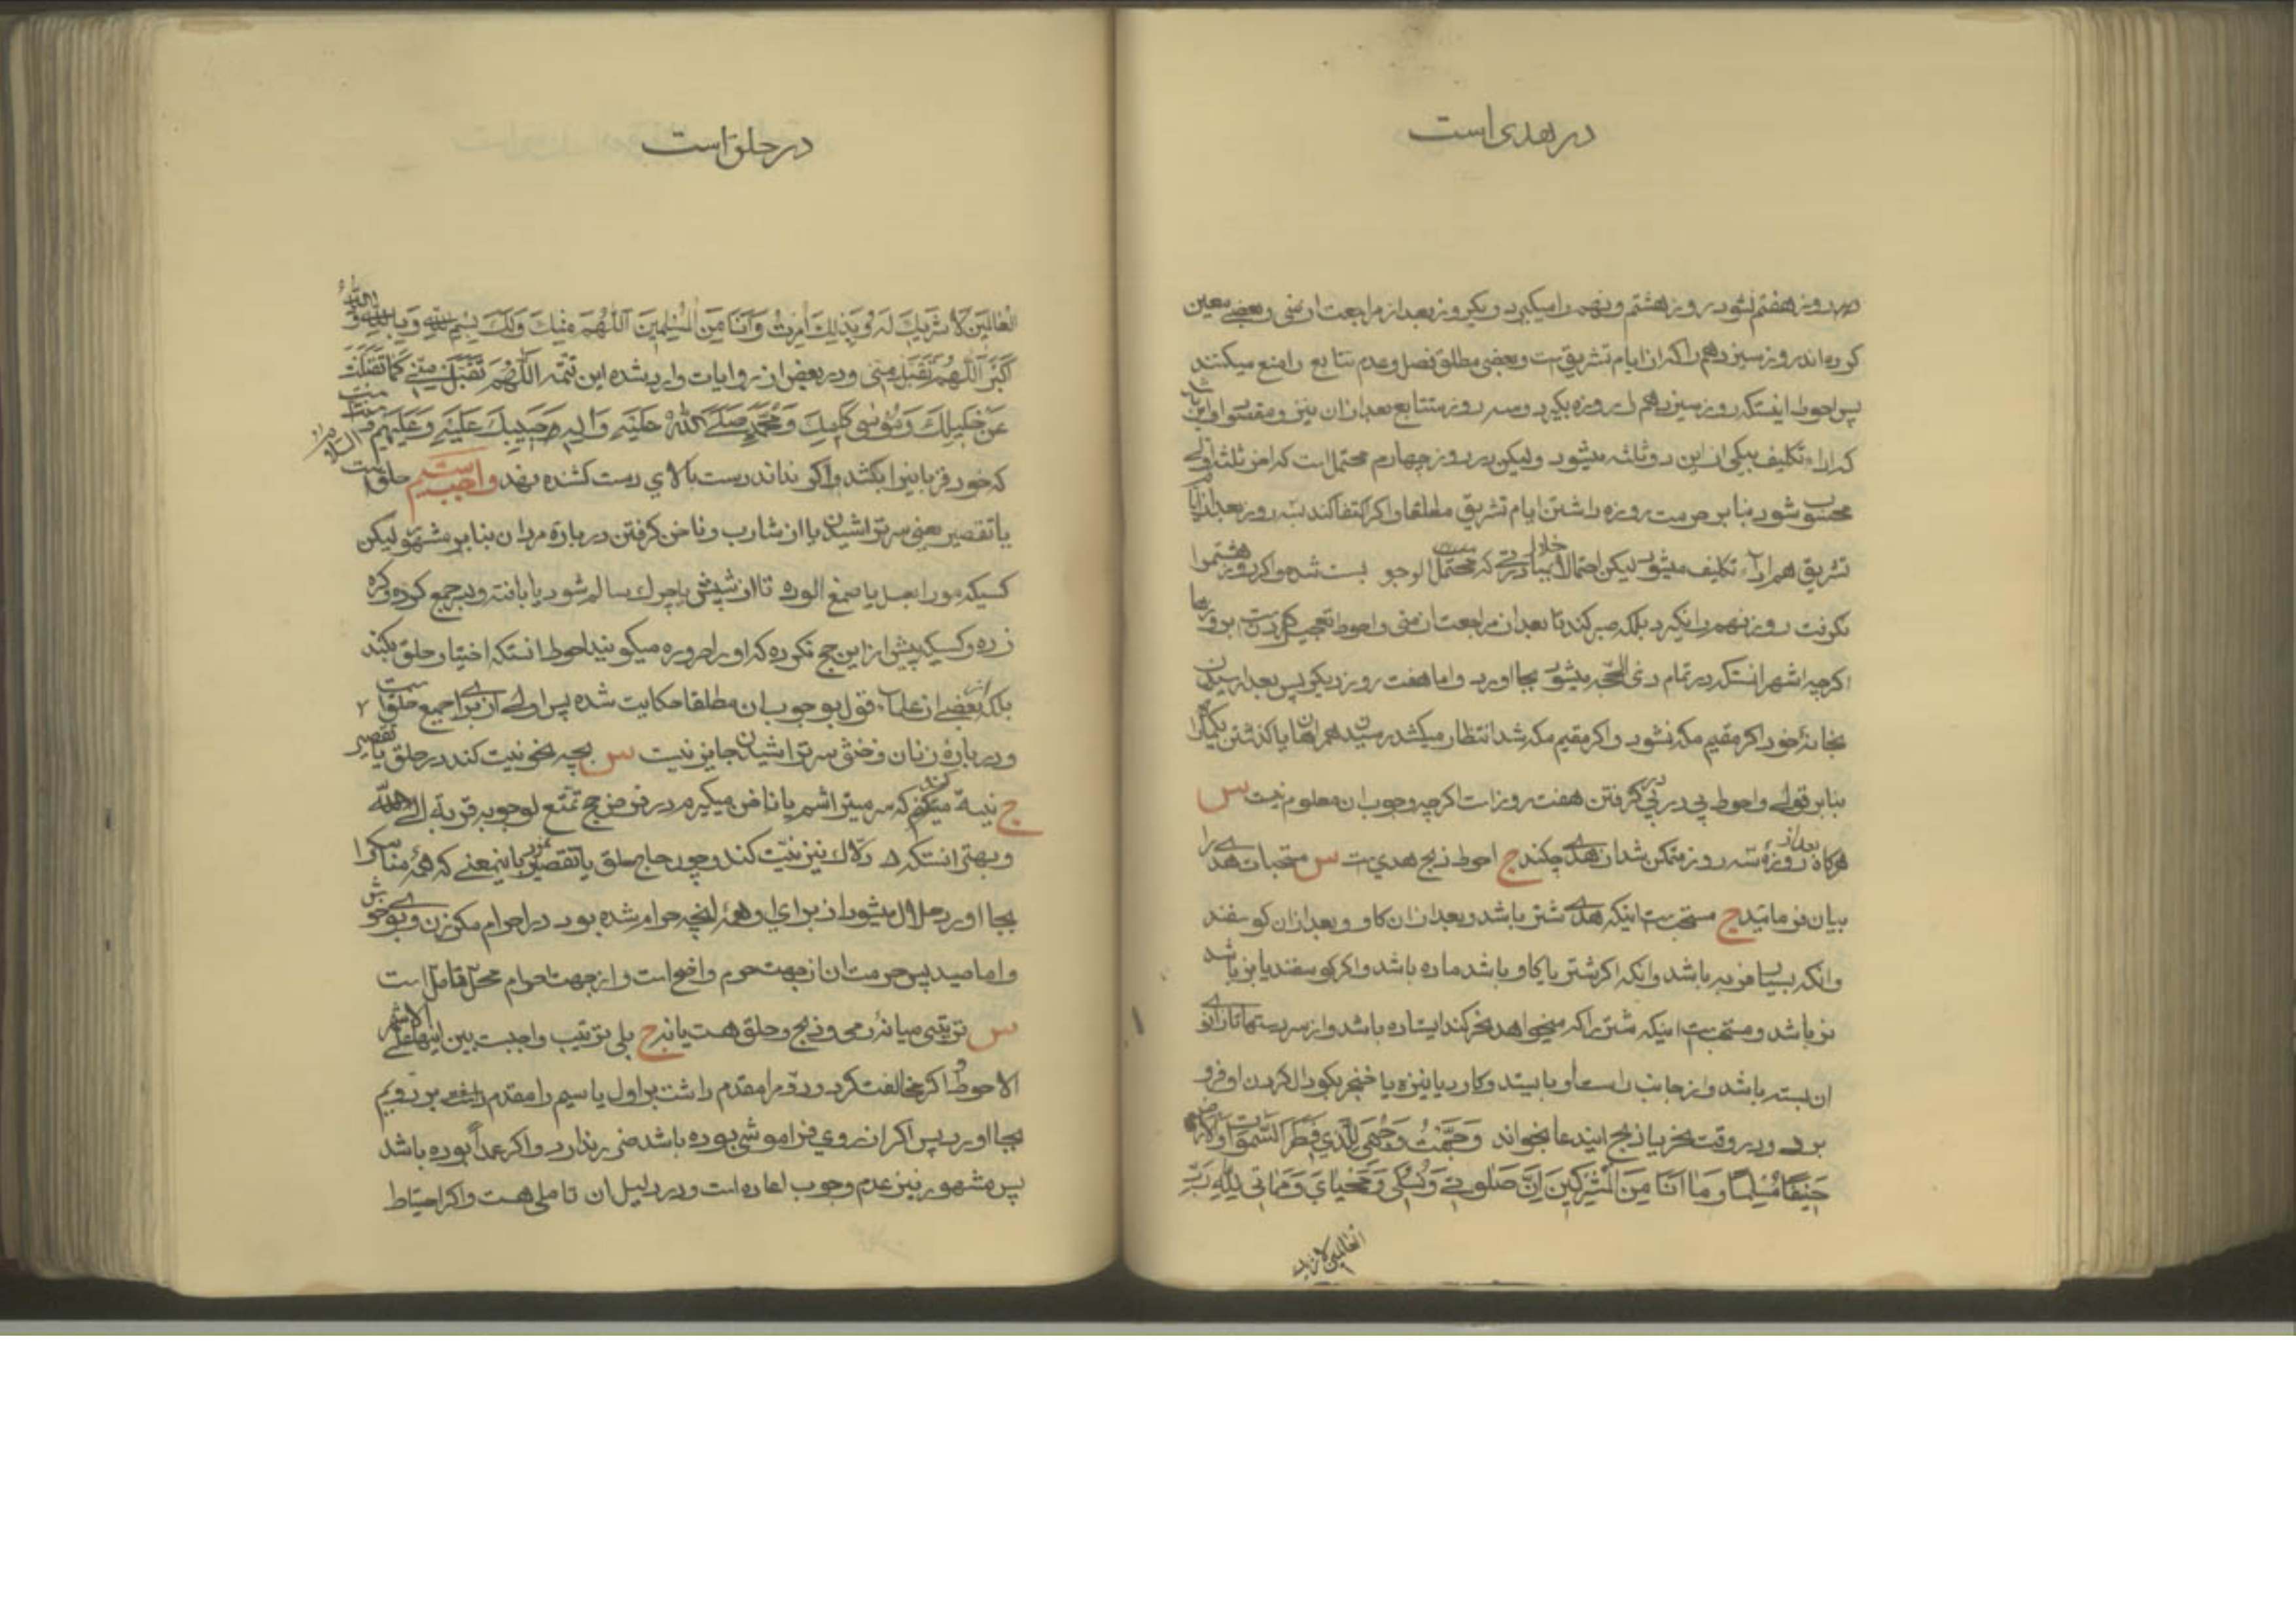 در هدی است
روز هفتم نشود روز هشتم و نهم را میگیرد و یکروز بعد از مراجعت از منی و بعضی معین
کرده اند روز سیزدهم را که از ایام تشریق است و بعضی مطلق فصل و عدم تتابع را منع میکنند
پس احوط اینستکه روز سیزدهم را روزه بگیرد و سه روز متتابع بعد از ان نیز و مقصود او این باشد
که اداء تکلیف بیکی از این دو ثلثه میشود ولیکن در روز چهارم محتمل است که از ثلثه اولی
محسوب شود بنابر حرمت روزه داشتن ایام تشریق مطلقا و اگر اکتفا کند بسه روز بعد از ایام
تشریق هم اداء تکلیف میشود لیکن احتمال دارد که محتمل الوجوب است شده و اگر روز هشتم را
نگرفت روز نهم را نگیرد بلکه صبر کند تا بعد از مراجعت از منی و احوط تعجیل کردنست بروزها
اگرچه اشهر انستکه در تمام ذی الحجه میشود بجا اورد و اما هفت روز دیگر پس بعد از رسیدن
بخانۀ خود اگر مقیم مکه نشود و اگر مقیم مکه شد انتظار میکشد رسیدن همراهان را یا گذشتن یکماه را
بنابر قولی و احوط پی در پی گرفتن هفت روز است اگرچه وجوب ان معلوم نیست س
هرگاه بعد از روزۀ سه روز متمکن شد از هدی چکند ج احوط ذبح هدیست س مستحبات هدی را
بیان فرمائید ج مستحب است اینکه هدی شتر باشد و بعد از ان گاو و بعد از ان گوسفند
و انکه بسیار فربه باشد و انکه اگر شتر یا گاو باشد ماده باشد و اگر گوسفند یا بز باشد
نر باشد و مستحب است اینکه شتر را که میخواهد نحر کند ایستاده باشد و از سر دستها تا زانوی
ان بسته باشد و از جانب راست او بایستد و کارد یا نیزه یا خنجر بگودال گردن او فرو
برد و در وقت نحر یا ذبح ایندعا بخواند وَجَّهْتُ وَجْهِيَ لِلَّذي فَطَرَ السَّمٰوَاتِ وَالْاَرْضَ
حَنيفًا مُسْلِمًا وَمَا اَنَا مِنَ الْمُشْرِكينَ اِنَّ صَلٰوتي وَنُسُكي وَمَحْيَايَ وَمَمَاتي لِلّٰهِ رَبِّ
العالمین لا شریک
در حلق است
الْعَالَمينَ لَا شَريكَ لَهُ وَبِذٰلِكَ اُمِرْتُ وَاَنَا مِنَ الْمُسْلِمينَ اَللّٰهُمَّ مِنْكَ وَلَكَ بِسْمِ اللّٰهِ وَبِاللّٰهِ وَ اللّٰهُ
اَكْبَرُ اَللّٰهُمَّ تَقَبَّلْ مِنّي و در بعض از روایات وارد شده این تتمه اَللّٰهُمَّ تَقَبَّلْ مِنّي كَمَا تَقَبَّلْتَ
عَنْ خَليلِكَ وَمُوسٰى كَليمِكَ وَمُحَمَّدٍ صَلَّى اللّٰهُ عَلَيْهِ وَاٰلِهِ حَبيبِكَ عَلَيْهِ وَعَلَيْهِمُ السلام
که خود قربانیرا بکشد و اگر نداند دست بالای دست کشنده بنهد واجب سیم حلق است
یا تقصیر یعنی سر تراشیدن یا از شارب و ناخن گرفتن در بارۀ مردان بنابر مشهور لیکن
کسیکه مو را بعسل یا صمغ الوده تا از شپش یا چرک سالم شود یا بافته و در جمع کرده و گره
زده و کسیکه پیش از این حج نکرده که او را صروره میگویند احوط انستکه اختیار حلق بکند
بلکه از بعضی از علماء قول بوجوب ان مطلقا حکایت شده پس اولی از برای جمیع حلق است
و در بارۀ زنان و خنثی سر تراشیدن جایز نیست س بچه نحو نیت کند در حلق یا تقصیر
ج نیت میکند که سر میتراشم یا ناخن میگیرم در فرض حج تمتع لوجوبه قربة الی الله
و بهتر انستکه دلاک نیز نیت کند و چون حاج حلق یا تقصیر نمود باینمعنی که همۀ مناسک را
بجا اورد حلال میشود از برای او همۀ انچه حرام شده بود در احرام مگر زن و بوی خوش
و اما صید پس حرمت ان از جهت حرم واضح است و از جهت احرام محل تامل است
س ترتیبی میانۀ رمی و ذبح و حلق هست یا نه ج بلی ترتیب واجبست بین اینها علی الاشهر
الاحوط و اگر مخالفت کرد و دوم را مقدم داشت بر اول یا سیم را مقدم داشت بر دویم
بجا اورد پس اگر از روی فراموشی بوده باشد ضرر ندارد و اگر عمداً بوده باشد
پس مشهور نیز عدم وجوب اعاده است و در دلیل ان تاملی هست و اگر احتیاط